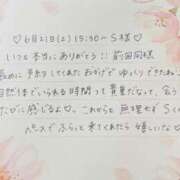 ♡6月21日(土) 15:30〜 S様♡
いつも本当にありがとう!! 前回同様
長めに予約してくれたおかげでゆっくりできたね
自然体でいられる時間って貴重だなって、会う
たびに感じるよ♡これからも無理せずSくん
ペースでふらっと来てくれたら嬉しいな♡